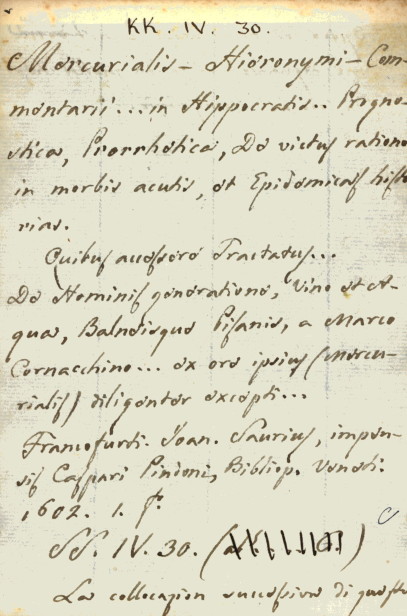 KK. IV. 30.
Mercurialis - Hieronymi - Com-
mentarii ... in Hippocratis .. Progno-
stica, Prorrhetica, De victus ratione
in morbis acutis, et Epidemicas histo
rias.
Quibus accessere Tractatus...
De Hominis generatione, Vino et A-
qua, Balneisque Pisanis, a Marco
Cornacchino ... ex ore ipsius (Mercu-
rialis) diligenter excepti...
Francofurti. Joan. Saurius, impen-
sis Caspari Pintoni, Bibliop. Veneti.
1602. 1. f.
SS. IV. 30. (
La collocazion successiva di questo